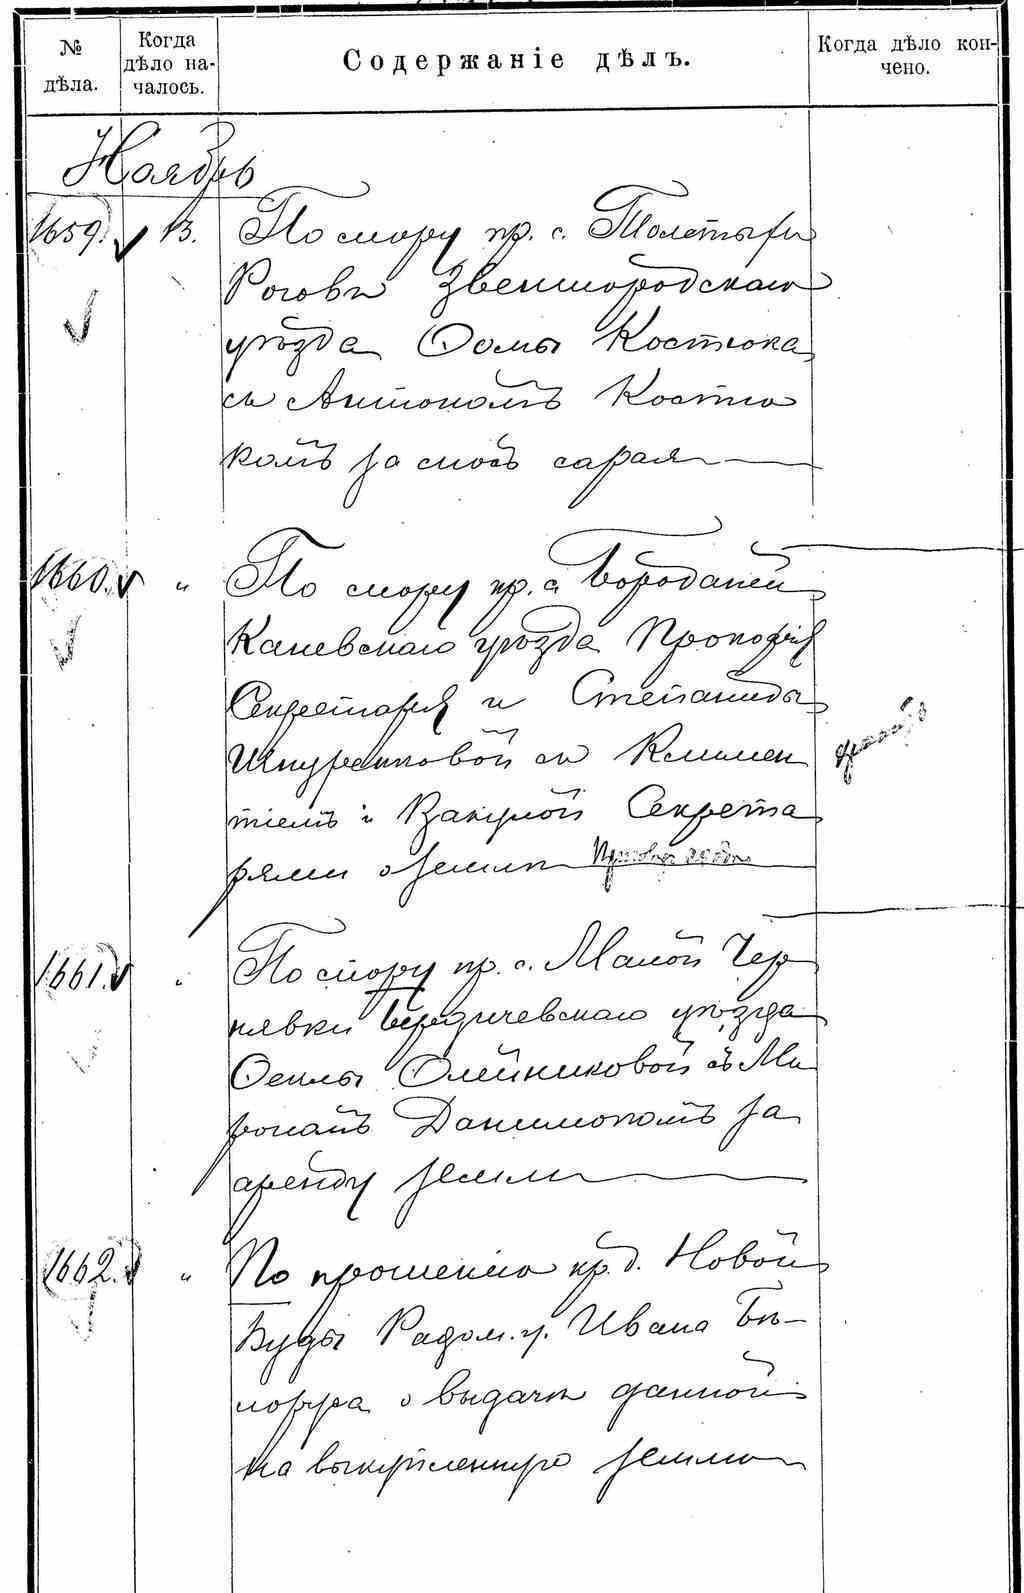 № дѣла.
Когда дѣло на-
чалось.
Содержаніе дѣлъ.
Когда дѣло кон-
чено.
Ноябрь
1659. 13. По спору кр. с. Толстыхъ
Роговъ Звенигородскаго
уѣзда Ѳомы Костюка
съ Антономъ Костю
комъ за сносъ сарая
1660. " По спору кр. с. Бородани
Каневскаго уѣзда Прокофія
Секретаря и Степаниды
Шкуренковой съ Климен
тіемъ и Вакулой Секрета
рями о землѣ
1661. " По спору кр. с. Малой Чер
нявки Бердичевскаго уѣзда
Ѳеклы Олейниковой съ Ми
рономъ Данилюкомъ за
аренду земли
1662. " По прошенію кр. д. Новой
Буды Радом. у. Ивана Бѣ-
о выдачѣ данной
на выкупленную землю